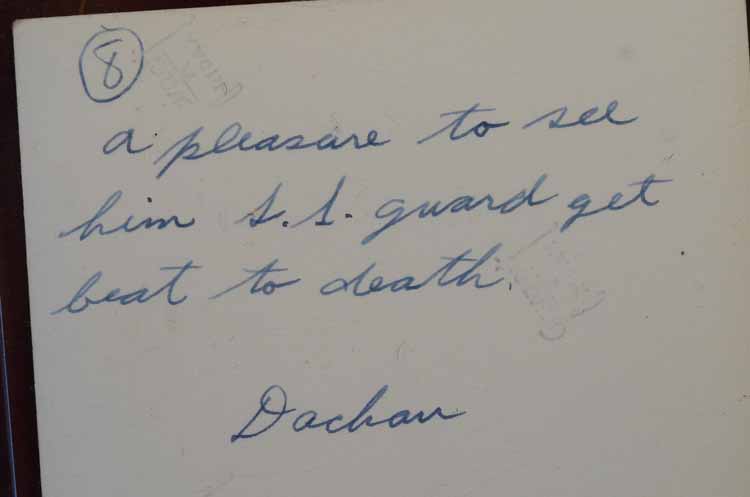 8
a pleasure to see
him S.S. guard get
beat to death.
Dachau